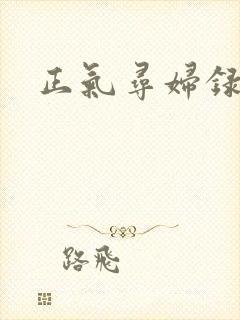 正氣尋婦録
路飛